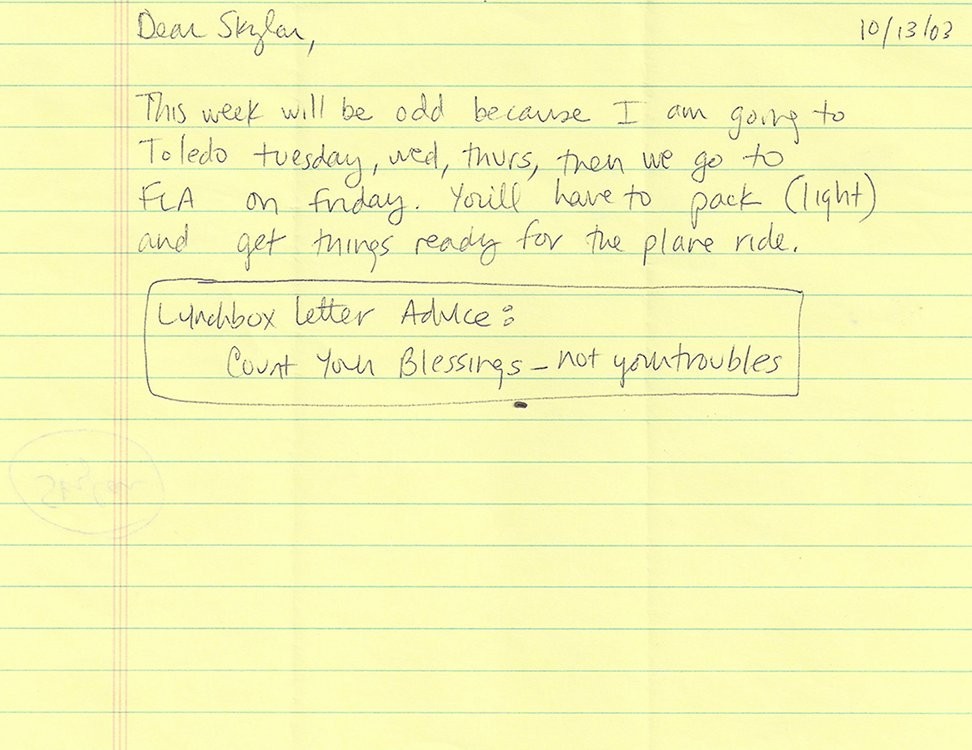 Dear Skylar,
10/13/03
This week will be odd because I am going to
Toledo tuesday, wed, thurs, then we go to
FLA on friday. You'll have to pack (light)
and get things ready for the plane ride.
Lunchbox Letter Advice:
Count Your Blessings - not your troubles